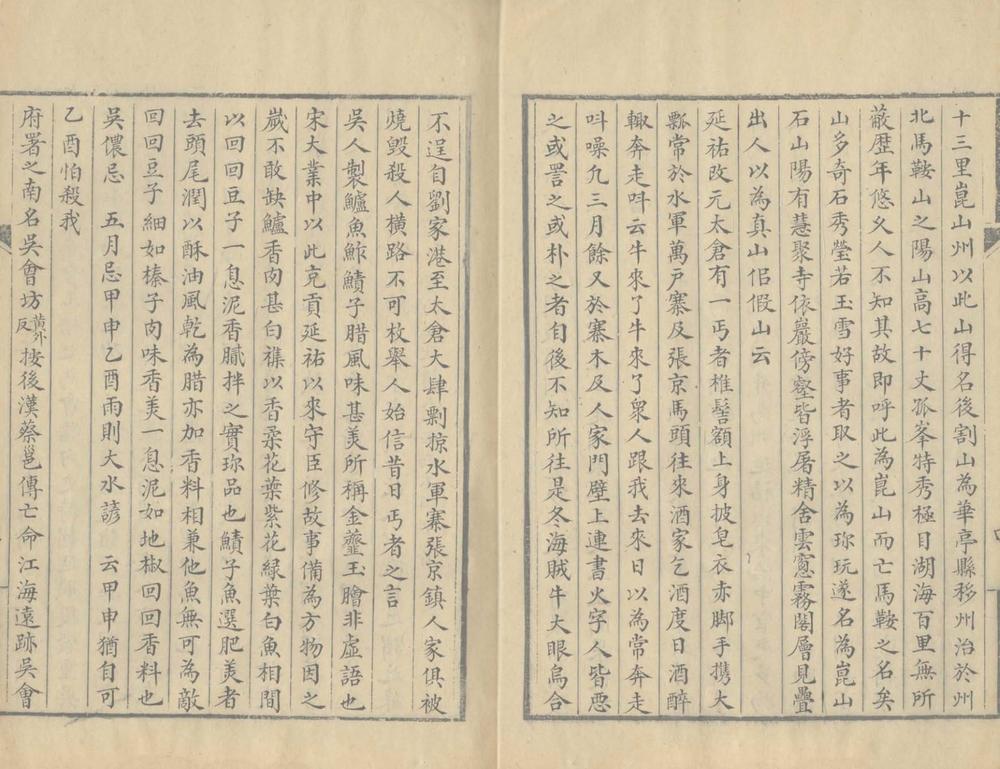 十三里崑山州以此山得名後割山為華亭縣移州治於州
北馬鞍山之陽山高七十丈孤峯特秀極目湖海百里無所
蔽歷年悠久人不知其故即呼此為崑山而亡馬鞍之名矣
山多奇石秀瑩若玉雪好事者取之以為珎玩遂名為崑山
石山陽有慧聚寺依巖傍壑皆浮屠精舍雲窻霧閣層見疊
出人以為真山佀假山云
延祐改元太倉有一丐者椎髻額上身披皂衣赤脚手攜大
瓢常於水軍萬戶寨及張京馬頭往來酒家乞酒度日酒醉
輙奔走呌云牛來了牛來了衆人跟我去來日以為常奔走
呌噪凡三月餘又於寨木及人家門壁上連書火字人皆惡
之或詈之或朴之者自後不知所往是冬海賊牛大眼烏合
不逞自劉家港至太倉大肆剽掠水軍寨張京鎮人家俱被
燒毀殺人橫路不可枚舉人始信昔日丐者之言
吳人製鱸魚鮓鱝子腊風味甚美所稱金虀玉膾非虛語也
宋大業中以此充貢延祐以來守臣修故事備為方物因之
嵗不敢缺鱸香肉甚白襍以香柔花葉紫花緑葉白魚相間
以回回豆子一息泥香膩拌之實珎品也鱝子魚選肥美者
去頭尾潤以酥油風乾為腊亦加香料相兼他魚無可為敵
回回豆子細如榛子肉味香美一息泥如地椒回回香料也
吳儂忌 五月忌甲申乙酉雨則大水諺 云甲申猶自可
乙酉怕殺我
府署之南名吳會坊黃外反按後漢蔡邕傳亡命江海遠跡吳會